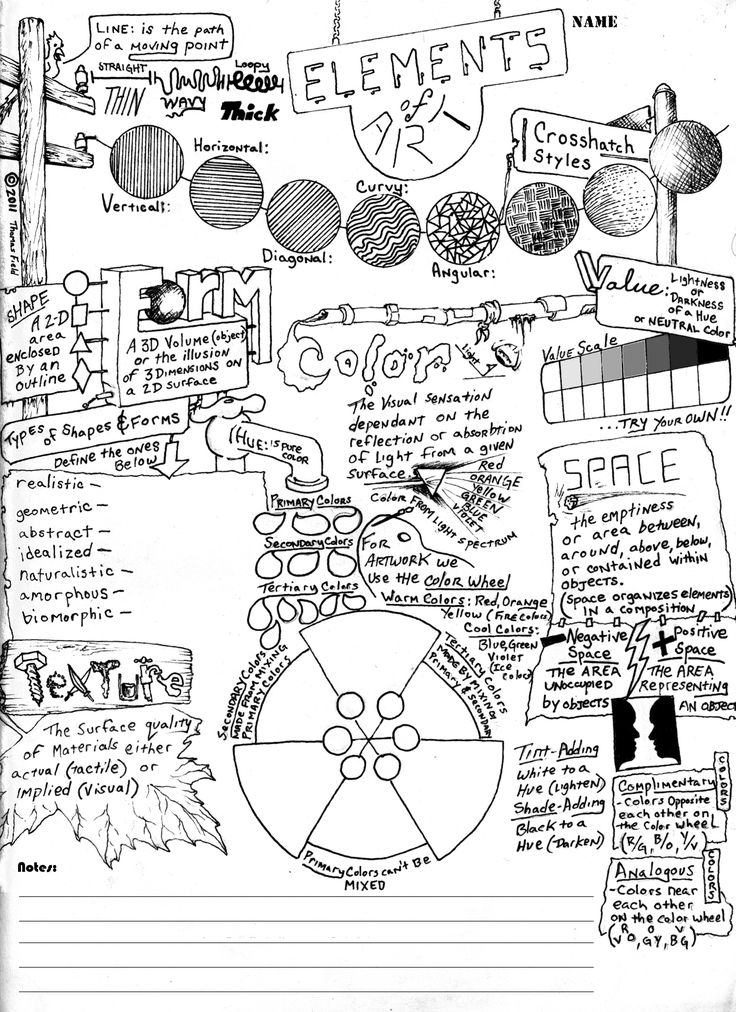 NAME
LINE: is the path
of a moving point
STRAIGHT
Loopy
THIN
WAVY
Thick
ELEMENTS
of
ART
Horizontal:
Vertical:
Diagonal:
Curvy:
Angular:
Crosshatch
Styles
©2011 Thomas Field
SHAPE
A 2-D
area
enclosed
BY an
outline
FORM
A 3D Volume (object)
or the illusion
of 3 Dimensions on
a 2D surface
Color
Light
The Visual Sensation
dependant on the
reflection or absorbtion
of light from a given
surface.
Color
FROM Light Spectrum
Red
ORANGE
Yellow
GREEN
BLUE
VIOLET
Value: Lightness
or
Darkness
of a Hue
or NEUTRAL Color
Value Scale
...TRY YOUR OWN!!
Types of Shapes & Forms
Define the ones
Below
realistic —
geometric —
abstract —
idealized —
naturalistic —
amorphous —
biomorphic —
Hue: is PURE
COLOR
PRIMARY COLORS
Secondary Colors
Tertiary Colors
FOR
ARTWORK we
USE the COLOR Wheel
Warm Colors: Red, Orange
Yellow (Fire Colors)
Cool Colors:
Blue, Green
Violet
(Ice
colors)
SPACE
the emptiness
or area between,
around, above, below,
or contained within
objects.
(Space organizes elements)
IN a composition)
- Negative
Space
the AREA
UNoccupied
by objects
+ Positive
Space
The AREA
Representing
AN OBJECT
TEXTURE
The Surface quality
of Materials either
actual (tactile) or
implied (visual)
Secondary Colors
made from mixing
Primary Colors
Tertiary Colors
Made by Mixing
Primary & Secondary
Primary Colors can't Be
MIXED
Tint-Adding
White to a
Hue (Lighten)
Shade-Adding
Black to a
Hue (Darken)
Complimentary
COLORS
-Colors Opposite
each other on
the Color Wheel
(R/G, B/O, Y/V)
Analogous
COLORS
-Colors near
each other
on the color wheel
Notes: